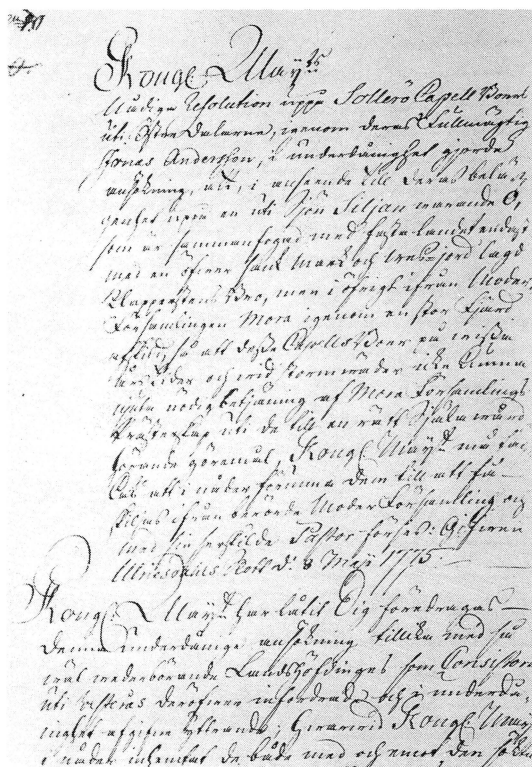 Kongl. Mayts
Nådiga Resolution uppå Sollerö Capell Boers
uti Östre Dalarne, igenom deras Fullmägtig
Jonas Andersson, i underdånighet gjorde
ansökning, att, i anseende till deras belä-
genhet uppå en uti Sjön Siljan warande Ö,
som är sammanfogad med fasta Landet endast
med en öfwer sank Mark och lagd
Klapperstens Bro, men i öfrigt ifrån Moder
Församlingen Mora igenom en stor Fjärd
afskild, så att desse Capells Boer på wissa
årstider och wid stormwäder icke kunna
njuta nödig betjäning af Mora Församlings
Prästerskap uti de till en rätt Själawård
hörande göremål, Kongl. Mayt må
att i nåder förunna dem till att få
skiljas ifrån berörde Moder Församling och
med sin serskilde Pastor förses: Gifwen
Slott d. 3 Maji 1775.
Kongl. Mayt har låtit Sig föredragas
denna underdånige ansökning tillika med hwad
wederbörande Landshöfdinge som Consistorium
uti Westerås deröfwer infordrade och i underdå-
nighet afgifne yttrande; Hwarwid Kongl. Mayt
i nåder inhemtat de både med och emot den